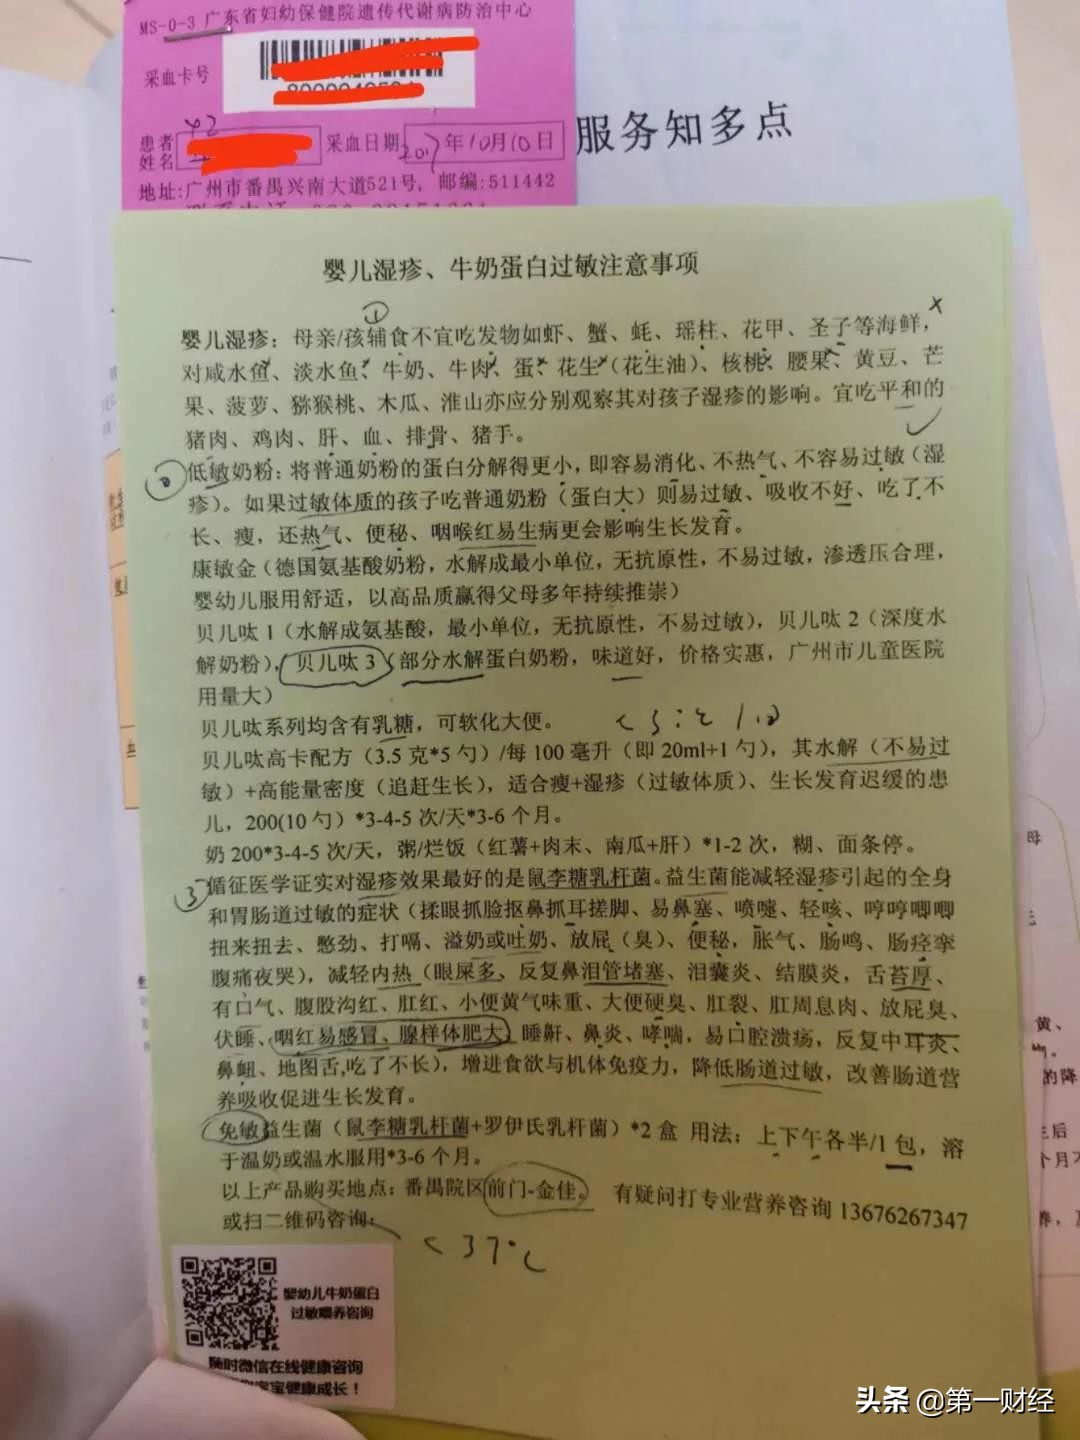 MS-0-3 广东省妇幼保健院遗传代谢病防治中心
采血卡号
患者
姓名
采血日期 2017年10月10日
地址:广州市番禺兴南大道521号, 邮编:511442
服务知多点
婴儿湿疹、牛奶蛋白过敏注意事项
①
x
婴儿湿疹：母亲/孩辅食不宜吃发物如虾、蟹、蚝、瑶柱、花甲、圣子等海鲜，
对咸水鱼、淡水鱼、牛奶、牛肉、蛋、花生（花生油）、核桃、腰果、黄豆、芒
果、菠萝、猕猴桃、木瓜、淮山亦应分别观察其对孩子湿疹的影响。宜吃平和的
猪肉、鸡肉、肝、血、排骨、猪手。
②
低敏奶粉：将普通奶粉的蛋白分解得更小，即容易消化、不热气、不容易过敏（湿
疹）。如果过敏体质的孩子吃普通奶粉（蛋白大）则易过敏、吸收不好、吃了不
长、瘦，还热气、便秘、咽喉红易生病更会影响生长发育。
康敏金（德国氨基酸奶粉，水解成最小单位，无抗原性，不易过敏，渗透压合理，
婴幼儿服用舒适，以高品质赢得父母多年持续推崇）
贝儿呔 1（水解成氨基酸，最小单位，无抗原性，不易过敏），贝儿呔 2（深度水
解奶粉），贝儿呔 3（部分水解蛋白奶粉，味道好，价格实惠，广州市儿童医院
用量大）
贝儿呔系列均含有乳糖，可软化大便。
贝儿呔高卡配方（3.5 克*5 勺）/每 100 毫升（即 20ml+1 勺），其水解（不易过
敏）+高能量密度（追赶生长），适合瘦+湿疹（过敏体质）、生长发育迟缓的患
儿，200(10 勺）*3-4-5 次/天*3-6 个月。
奶 200*3-4-5 次/天，粥/烂饭（红薯+肉末、南瓜+肝）*1-2 次，糊、面条停。
③
循征医学证实对湿疹效果最好的是鼠李糖乳杆菌。益生菌能减轻湿疹引起的全身
和胃肠道过敏的症状（揉眼抓脸抠鼻抓耳搓脚、易鼻塞、喷嚏、轻咳、哼哼唧唧
扭来扭去、憋劲、打嗝、溢奶或吐奶、放屁（臭）、便秘，胀气、肠鸣、肠痉挛
腹痛夜哭），减轻内热（眼屎多、反复鼻泪管堵塞、泪囊炎、结膜炎，舌苔厚、
有口气、腹股沟红、肛红、小便黄气味重、大便硬臭、肛裂、肛周息肉、放屁臭、
伏睡、咽红易感冒、腺样体肥大）睡鼾、鼻炎、哮喘，易口腔溃疡，反复中耳炎、
鼻衄、地图舌,吃了不长），增进食欲与机体免疫力，降低肠道过敏，改善肠道营
养吸收促进生长发育。
免敏益生菌（鼠李糖乳杆菌+罗伊氏乳杆菌）*2 盒 用法：上下午各半/1 包，溶
于温奶或温水服用*3-6 个月。
以上产品购买地点：番禺院区前门-金佳。 有疑问打专业营养咨询 13676267347
或扫二维码咨询：
<37℃
婴幼儿牛奶蛋白
过敏喂养咨询
随时微信在线健康咨询
宝宝健康成长！
头条 @第一财经